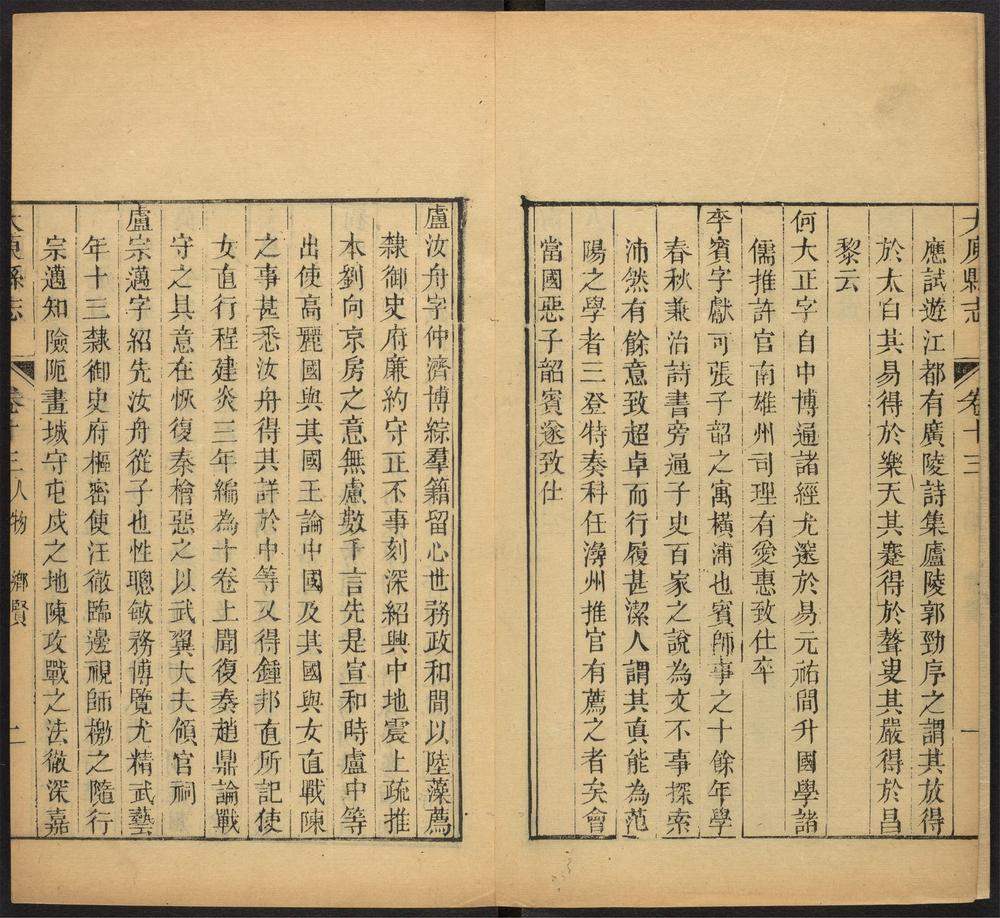 大庾縣志 卷十三 一
應試遊江都有廣陵詩集廬陵郭勁序之謂其放得
於太白其易得於樂天其蹇得於聱叟其嚴得於昌
黎云
何大正字自中博通諸經尤邃於易元祐間升國學諸
儒推許官南雄州司理有愛惠致仕卒
李賓字獻可張子韶之寓橫浦也賓師事之十餘年學
春秋兼治詩書旁通子史百家之說為文不事探索
沛然有餘意致超卓而行履甚潔人謂其真能為范
陽之學者三登特奏科任潯州推官有薦之者矣會
當國惡子韶賓遂致仕
盧汝舟字仲濟博綜羣籍留心世務政和間以陸藻薦
隸御史府廉約守正不事刻深紹興中地震上疏推
本劉向京房之意無慮數千言先是宣和時盧中等
出使高麗國與其國王論中國及其國與女直戰陳
之事甚悉汝舟得其詳於中等又得鍾邦直所記使
女直行程建炎三年編為十卷上聞復奏趙鼎論戰
守之具意在恢復秦檜惡之以武翼大夫領官祠
盧宗邁字紹先汝舟從子也性聰敏務博覽尤精武藝
年十三隸御史府樞密使汪徹臨邊視師檄之隨行
宗邁知險阨畫城守屯戍之地陳攻戰之法徹深嘉
大庾縣志 卷十三人物 鄉賢 二